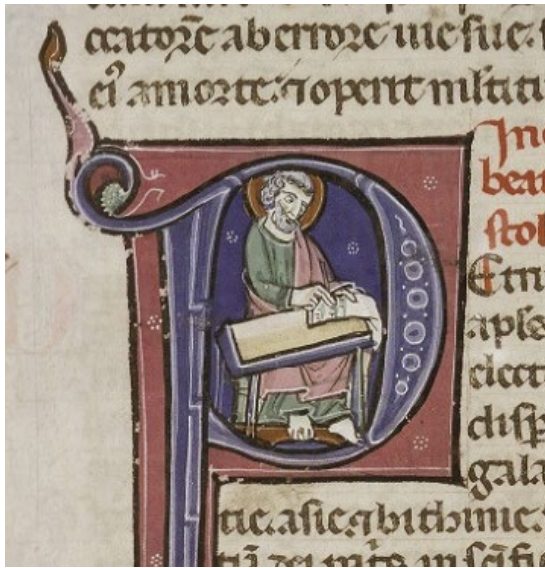 ccatorē ab errore uie sue. s
ei9 a morte. ⁊ operit ml̄titu
Inc
bea
stol
Etru
apl̄s
elect
disp
gala
tie. asie. ⁊ bithinie.